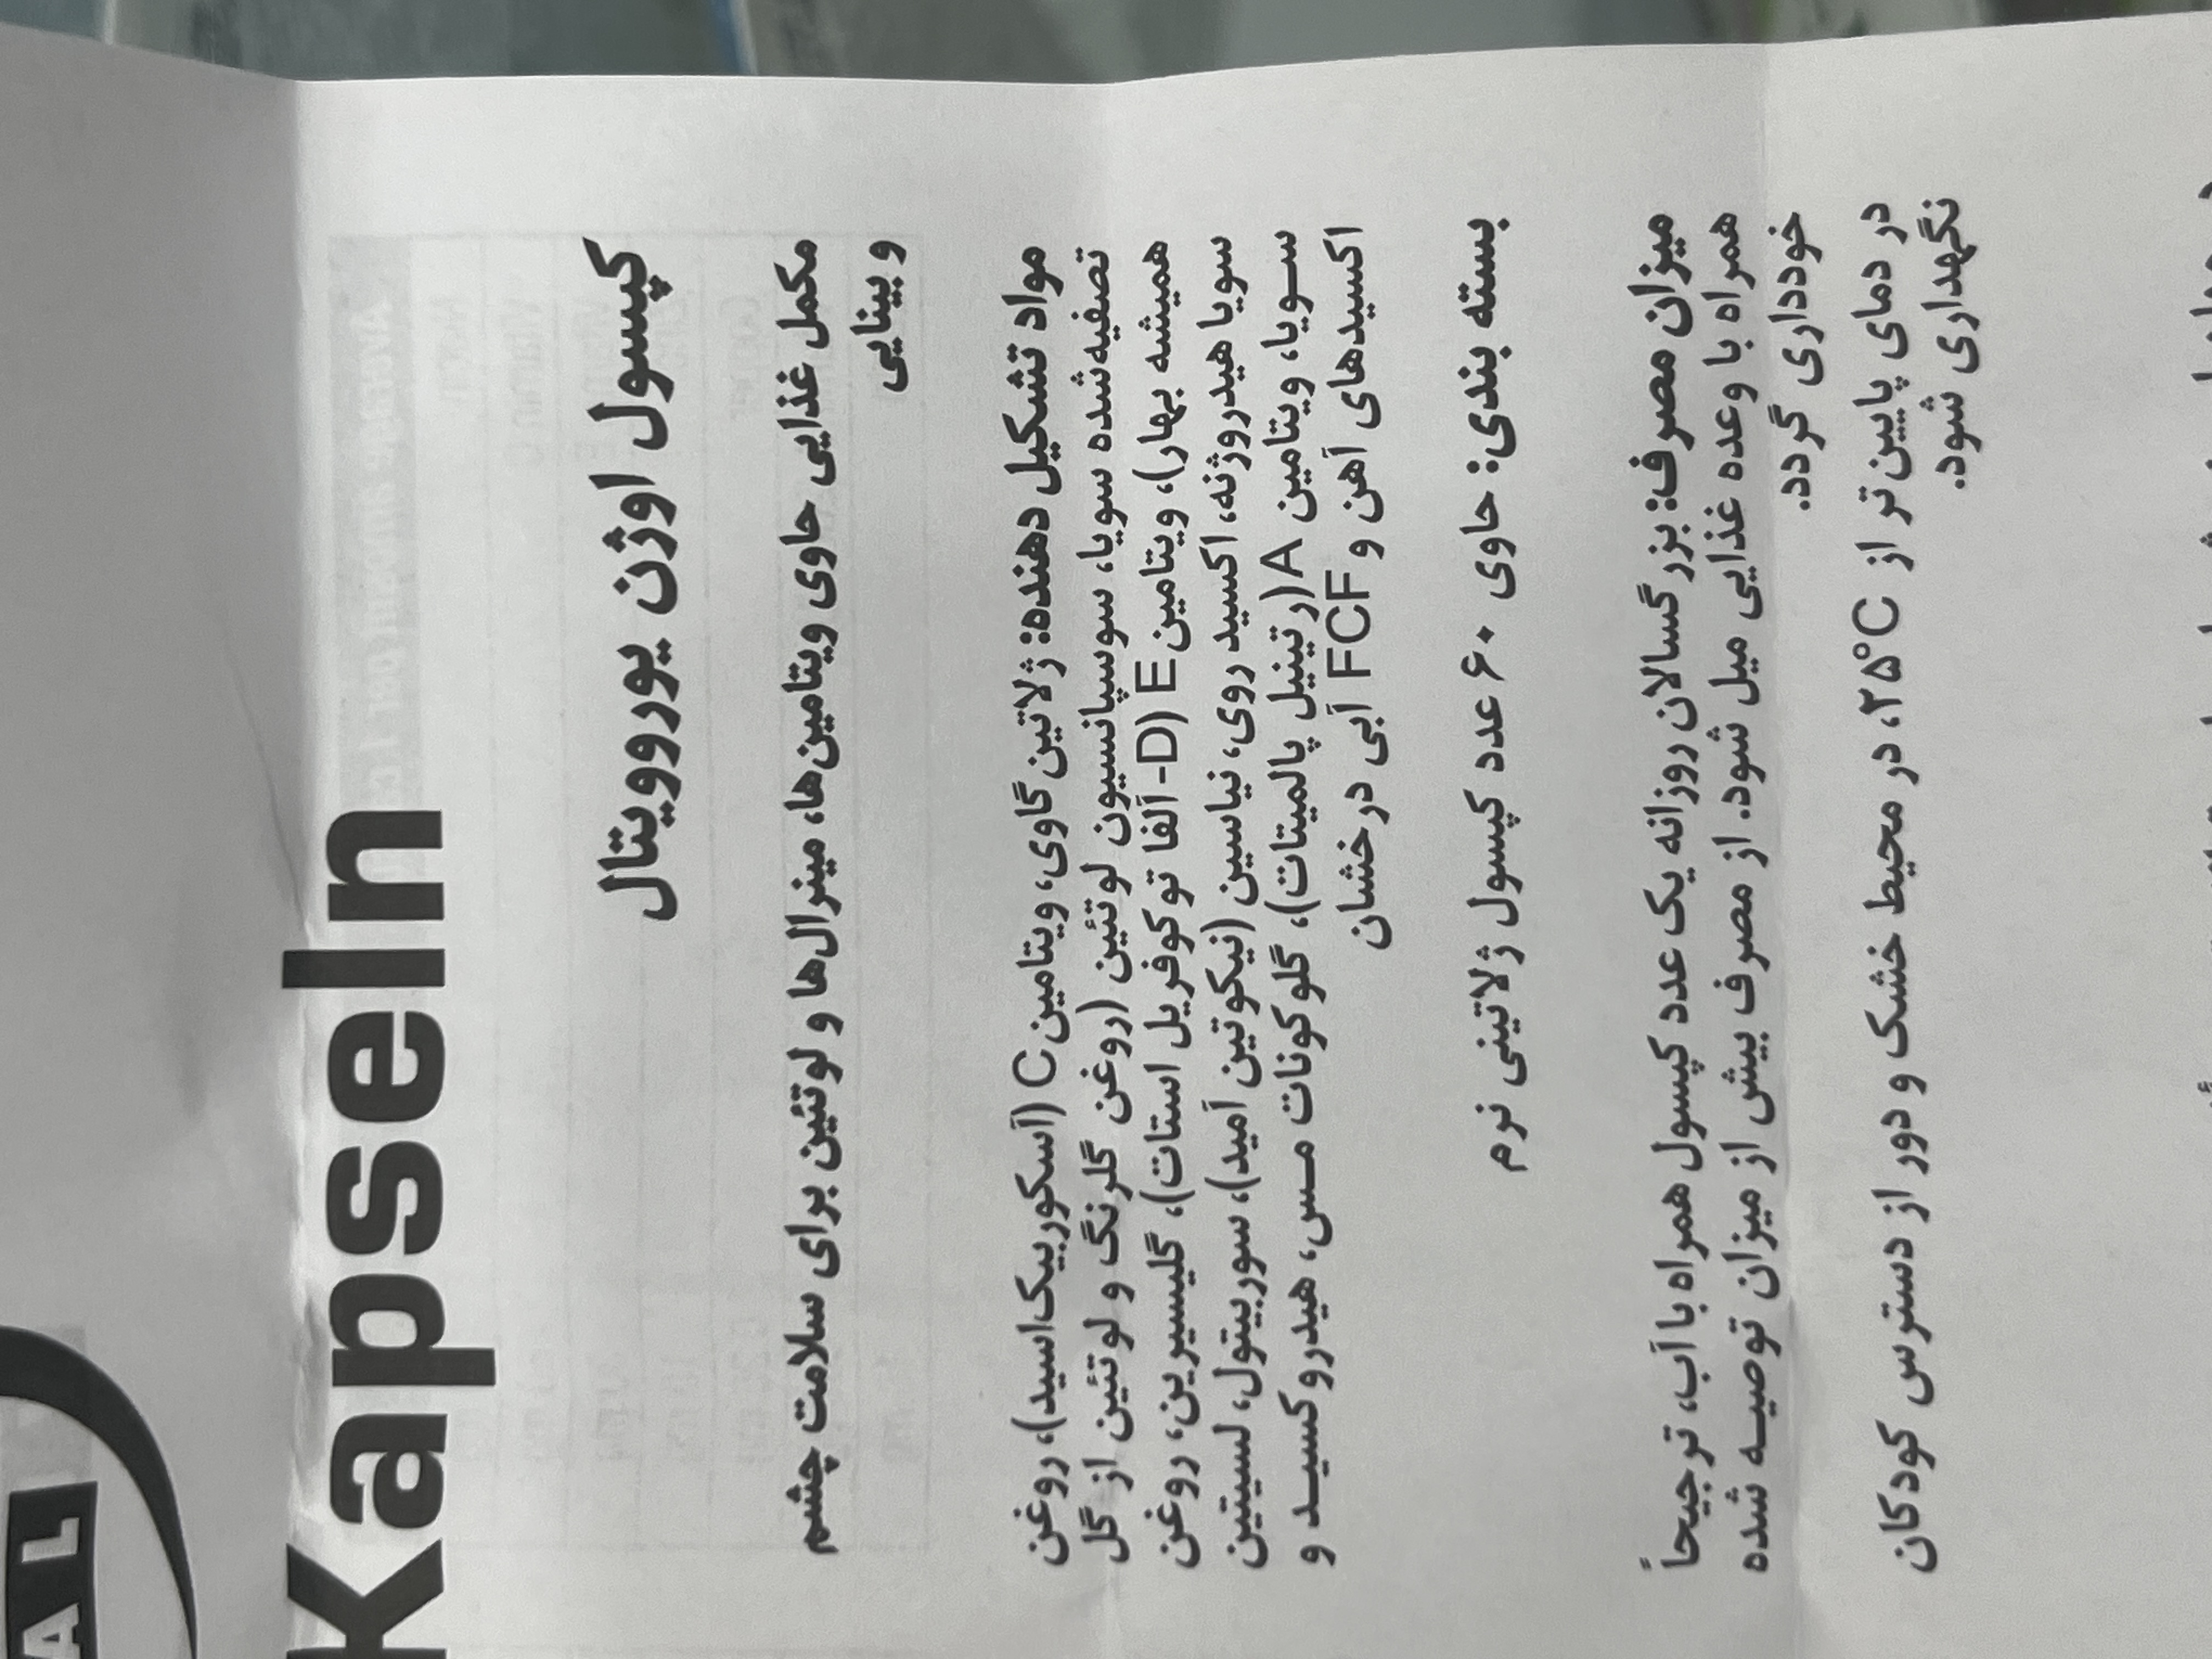 AL
Kapseln
کپسول اوژن یوروویتال
مکمل غذایی حاوی ویتامین‌ها، مینرال‌ها و لوتئین برای سلامت چشم
و بینایی
مواد تشکیل دهنده: ژلاتین گاوی، ویتامین C (آسکوربیک‌اسید)، روغن
تصفیه‌شده سویا، سوسپانسیون لوتئین (روغن گلرنگ و لوتئین از گل
همیشه بهار)، ویتامین E (D-آلفا توکوفریل استات)، گلیسیرین، روغن
سویا هیدروژنه، اکسید روی، نیاسین (نیکوتین آمید)، سوربیتول، لسیتین
سویا، ویتامین A (رتینیل پالمیتات)، گلوکونات مس، هیدروکسید و
اکسیدهای آهن و FCF آبی درخشان
بسته بندی: حاوی ۶۰ عدد کپسول ژلاتینی نرم
میزان مصرف: بزرگسالان روزانه یک عدد کپسول همراه با آب، ترجیحاً
همراه با وعده غذایی میل شود. از مصرف بیش از میزان توصیه شده
خودداری گردد.
در دمای پایین‌تر از ۲۵°C، در محیط خشک و دور از دسترس کودکان
نگهداری شود.